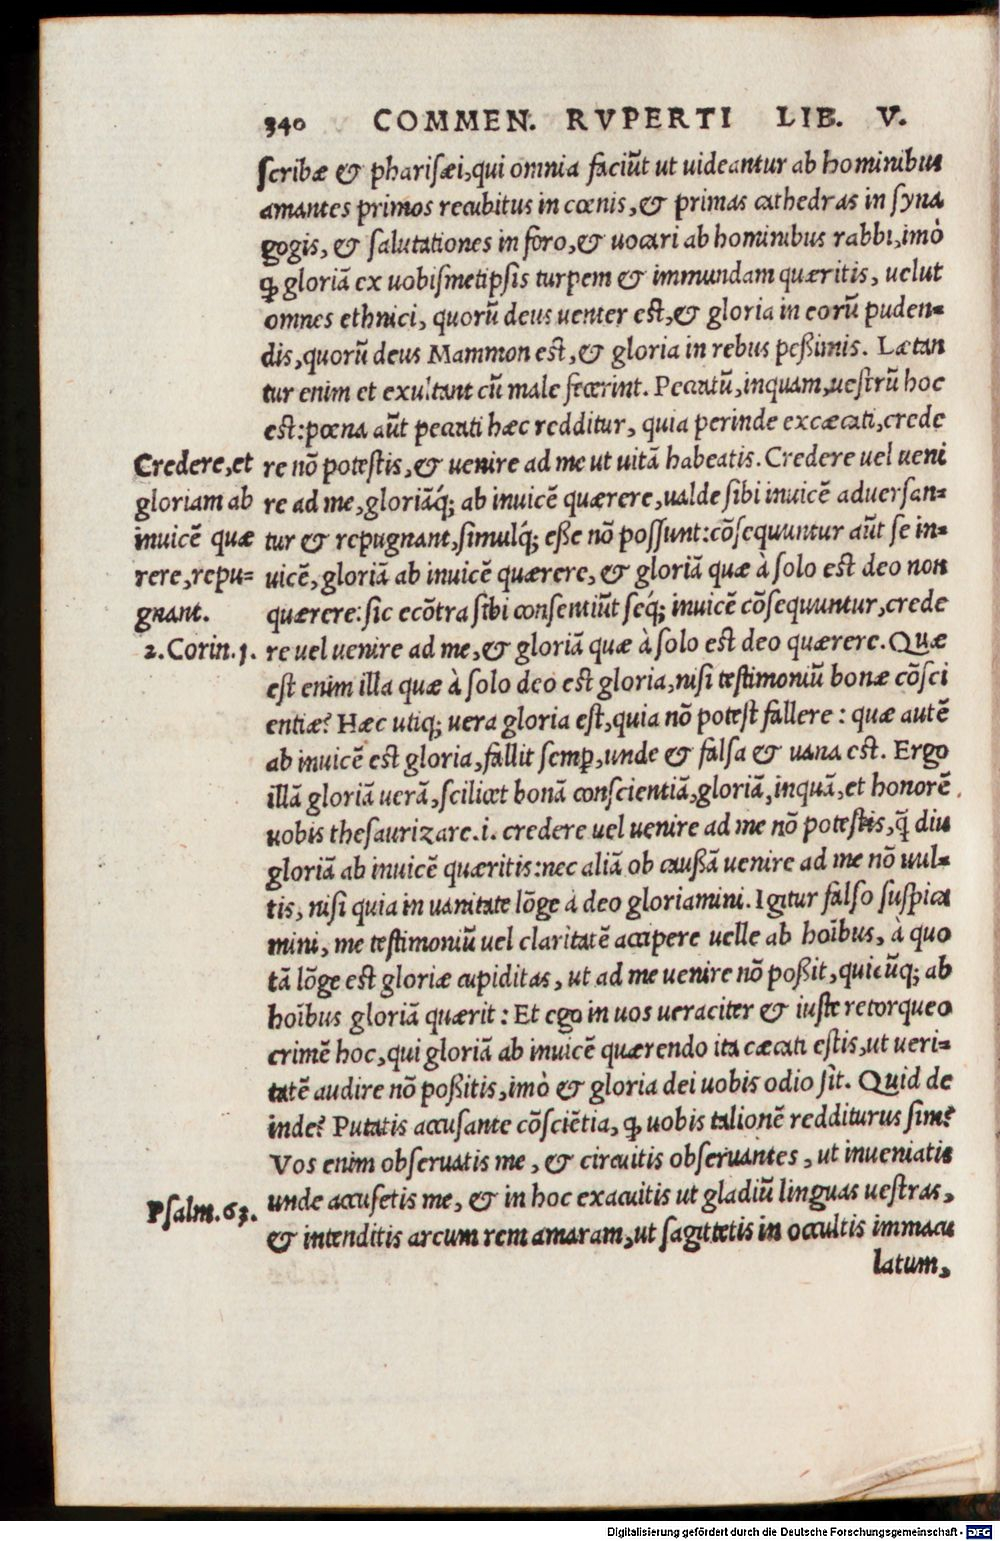 340 COMMEN. RVPERTI LIB. V.
ſcribæ & phariſæi, qui omnia faciūt ut uideantur ab hominibus
amantes primos recubitus in cœnis, & primas cathedras in ſyna
gogis, & ſalutationes in foro, & uocari ab hominibus rabbi, imò
ꝙ gloriā ex uobiſmetipſis turpem & immundam quæritis, uelut
omnes ethnici, quorū deus uenter eſt, & gloria in eorū puden-
dis, quorū deus Mammon eſt, & gloria in rebus peßimis. Lætan
tur enim et exultant cū male fecerint. Peccatū, inquam, ueſtrū hoc
eſt: pœna aūt peccati hæc redditur, quia perinde excæcati, crede
re nō poteſtis, & uenire ad me ut uitā habeatis. Credere uel ueni
re ad me, gloriāq́; ab inuicē quærere, ualde ſibi inuicē aduerſan-
tur & repugnant, ſimulq́; eße nō poſſunt: cōſequuntur aūt ſe in-
uicē, gloriā ab inuicē quærere, & gloriā quæ à ſolo eſt deo non
quærere: ſic ecōtra ſibi conſentiūt ſeq́; inuicē cōſequuntur, crede
re uel uenire ad me, & gloriā quæ à ſolo eſt deo quærere. Quæ
eſt enim illa quæ à ſolo deo eſt gloria, niſi teſtimoniū bonæ cōſci
entiæ? Hæc utiq; uera gloria eſt, quia nō poteſt fallere: quæ autē
ab inuicē eſt gloria, fallit ſemꝑ, unde & falſa & uana eſt. Ergo
illā gloriā uerā, ſcilicet bonā conſcientiā, gloriā, inquā, et honorē
uobis theſaurizare .i. credere uel uenire ad me nō poteſtis, q̄ diu
gloriā ab inuicē quæritis: nec aliā ob cauſſā uenire ad me nō uul-
tis, niſi quia in uanitate lōge à deo gloriamini. Igitur falſo ſuſpica
mini, me teſtimoniū uel claritatē accipere uelle ab hoībus, à quo
tā lōge eſt gloriæ cupiditas, ut ad me uenire nō poßit, quicūq; ab
hoībus gloriā quærit: Et ego in uos ueraciter & iuſte retorqueo
crimē hoc, qui gloriā ab inuicē quærendo ita cæcati eſtis, ut ueri-
tatē audire nō poßitis, imò & gloria dei uobis odio ſit. Quid de
inde? Putatis accuſante cōſciētia, ꝙ uobis talionē redditurus ſim?
Vos enim obſeruatis me, & circuitis obſeruantes, ut inueniatis
unde accuſetis me, & in hoc exacuitis ut gladiū linguas ueſtras,
& intenditis arcum rem amaram, ut ſagittetis in occultis immacu
latum,
Credere, et
gloriam ab
inuicē quæ
rere, repu-
gnant.
2. Corin. 1.
Pſalm. 63.
Digitalisierung gefördert durch die Deutsche Forschungsgemeinschaft - DFG